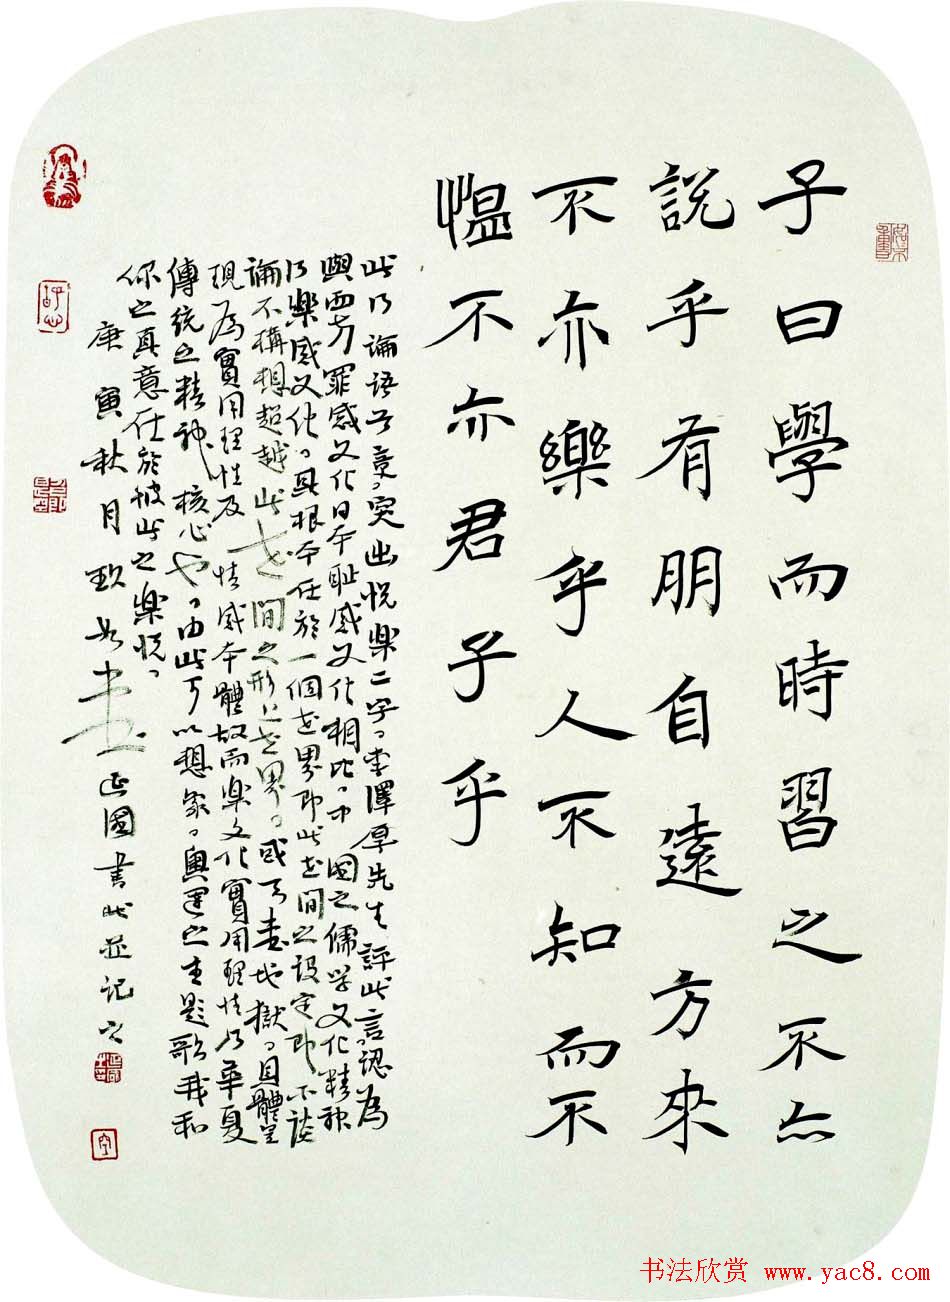 子曰學而時習之不亦
說乎有朋自遠方來
不亦樂乎人不知而不
愠不亦君子乎
此乃論語首章突出悦樂二字李澤厚先生評此言認為
與西方罪感文化日本耻感文化相比中國之儒学文化精神
乃樂感文化其根本在於一個世界即此世間之設定即不談
論不構想超越此世間之形上世界或天堂地獄具體呈
現為實用理性及情感本體故而樂文化實用理性乃華夏
傳統之精神核心也由此可以想象奥運之主題歌我和
你之真意在於彼此之樂悦
庚寅秋月
正國書此並記之
书法欣赏 www.yac8.com